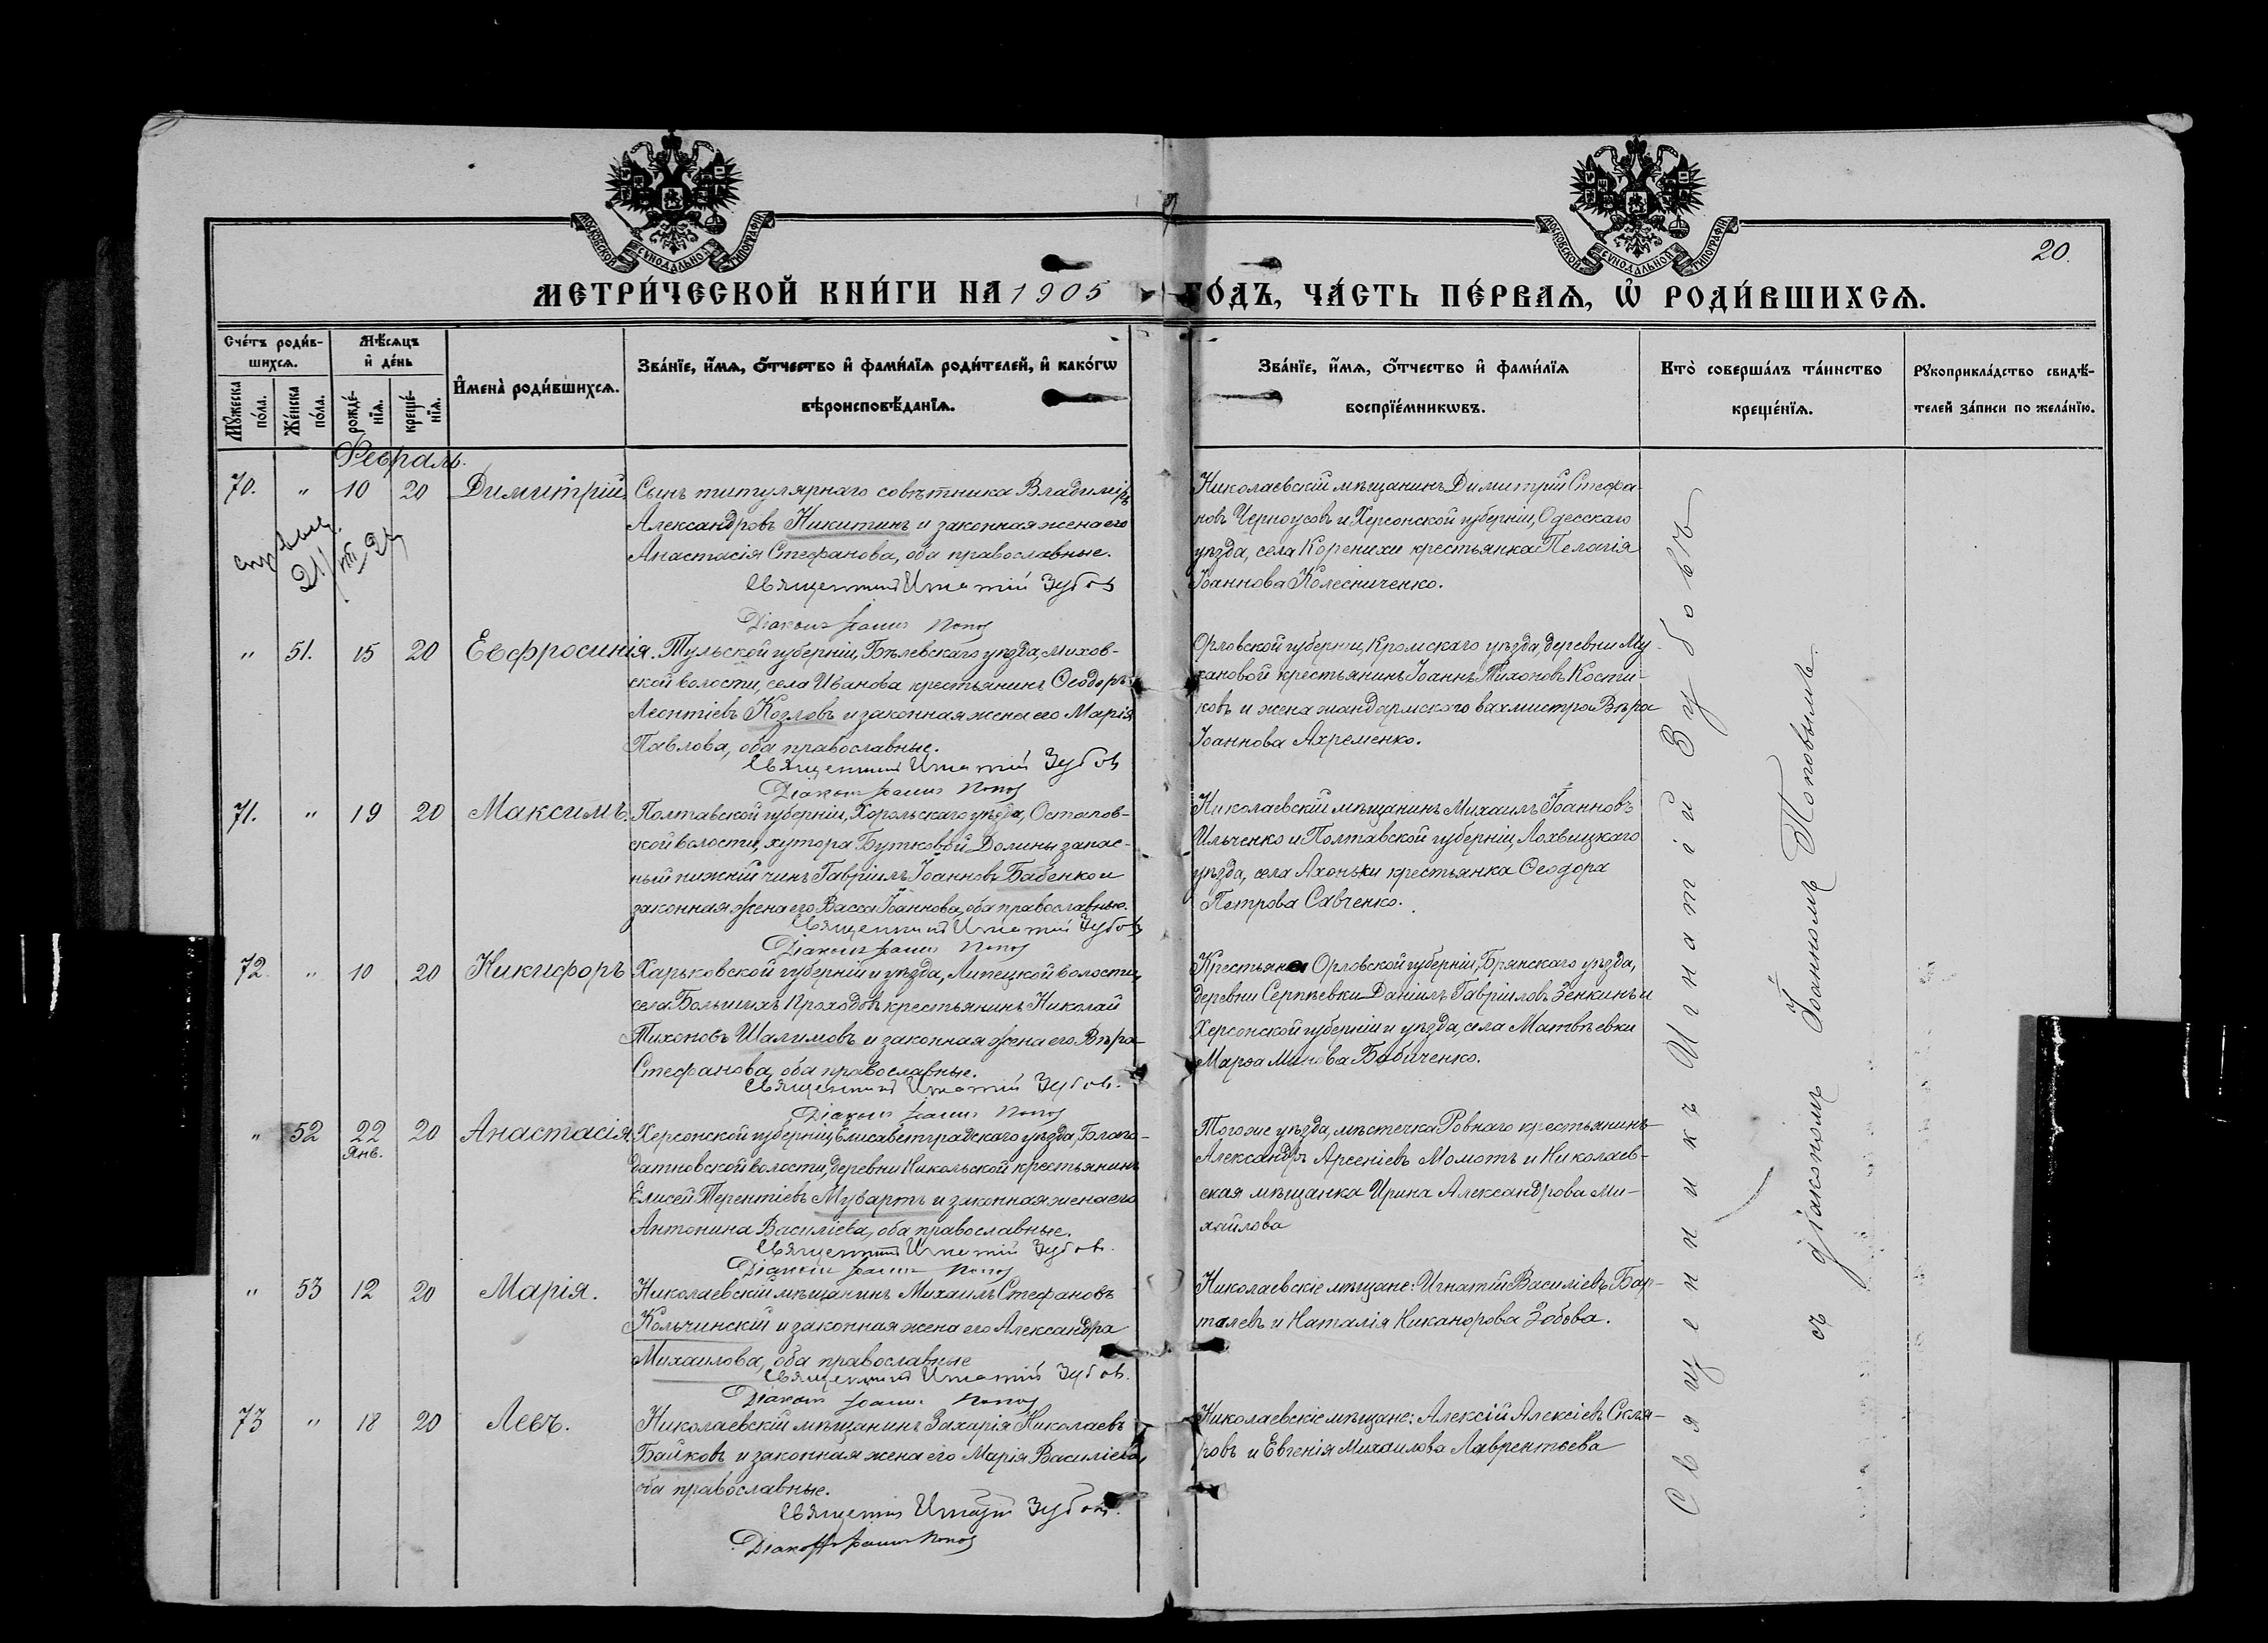 МОСКОВСКОЙ СѴНОДАЛЬНОЙ ТИПОГРАФІИ
МОСКОВСКОЙ СѴНОДАЛЬНОЙ ТИПОГРАФІИ
20.
МЕТРИ́ЧЕСКОЙ КНИ́ГИ НА 1905 ГО́ДЪ, ЧА́СТЬ ПЕ́РВАѦ, Ѡ҆ РОДИ́ВШИХСѦ.
Сче́тъ роди́в-
шихсѧ.
Мꙋ́жеска по́ла.
Же́нска по́ла.
Мѣ́сѧцъ
и҆ де́нь
рожде́-
нїѧ.
креще́-
нїѧ.
И҆мена̀ роди́вшихсѧ.
Зва́нїе, и҆́мѧ, ѻ҆́тчество и҆ фами́лїѧ роди́телей, и҆ како́гѡ
вѣроисповѣ́данїѧ.
Зва́нїе, и҆́мѧ, ѻ҆́тчество и҆ фами́лїѧ
воспрїе́мникѡвъ.
Кто̀ соверша́лъ та́инство
креще́нїѧ.
Рꙋкоприкла́дство свидѣ́-
телей за́писи по жела́нїю.
Февраль.
70. " 10 20 Димитрій
Сынъ титулярнаго совѣтника Владиміръ
Александровъ Никитинъ и законная жена его
Анастасія Стефанова, оба православные.
Священникъ Игнатій Зубовъ
Діаконъ Іоаннъ Поповъ
Николаевскій мѣщанинъ Димитрій Стефа-
новъ Черноусовъ и Херсонской губерніи, Одесскаго
уѣзда, села Коренихи крестьянка Пелагія
Іоаннова Колесниченко.
21/VIII 24
" 51. 15 20 Евфросинія.
Тульской губерніи, Бѣлевскаго уѣзда, Михов-
ской волости, села Иванова крестьянинъ Ѳеодоръ
Леонтіевъ Козловъ и законная жена его Марія
Павлова, оба православные.
Священникъ Игнатій Зубовъ
Діаконъ Іоаннъ Поповъ
Орловской губерніи, Кромскаго уѣзда, деревни Му-
хановой крестьянинъ Іоаннъ Тихоновъ Кости-
ковъ и жена жандармскаго вахмистра Вѣра
Іоаннова Ахременко.
71. " 19 20 Максимъ.
Полтавской губерніи, Хорольскаго уѣзда, Остапов-
ской волости, хутора Бутковой Долины запас-
ный нижній чинъ Гавріилъ Іоанновъ Бабенко и
законная жена его Васса Іоаннова, оба православные.
Священникъ Игнатій Зубовъ
Діаконъ Іоаннъ Поповъ
Николаевскій мѣщанинъ Михаилъ Іоанновъ
Ильченко и Полтавской губерніи, Лохвицкаго
уѣзда, села Ахоньки крестьянка Ѳеодора
Петрова Савченко.
72. " 10 20 Никифоръ
Харьковской губерніи и уѣзда, Липецкой волости,
села Большихъ Проходовъ крестьянинъ Николай
Тихоновъ Шалимовъ и законная жена его Вѣра
Стефанова, оба православные.
Священникъ Игнатій Зубовъ.
Діаконъ Іоаннъ Поповъ
Крестьяне Орловской губерніи, Брянскаго уѣзда,
деревни Сергѣевки Даніилъ Гавріиловъ Зенкинъ и
Херсонской губерніи и уѣзда, села Матвѣевки
Марѳа Минова Бабиченко.
" 52 22 20 Анастасія
Янв.
Херсонской губерніи, Елисаветградскаго уѣзда, Благо-
датновской волости, деревни Никольской крестьянинъ
Елисей Терентіевъ Мувартъ и законная жена его
Антонина Василіева, оба православные.
Священникъ Игнатій Зубовъ.
Діаконъ Іоаннъ Поповъ
Того же уѣзда, мѣстечка Ровнаго крестьянинъ
Александръ Арсеніевъ Момотъ и Николаев-
ская мѣщанка Ирина Александрова Ми-
хайлова
" 53 12 20 Марія.
Николаевскій мѣщанинъ Михаилъ Стефановъ
Кольчинскій и законная жена его Александра
Михаилова, оба православные
Священникъ Игнатій Зубовъ.
Діаконъ Іоаннъ Поповъ
Николаевскіе мѣщане: Игнатій Василіевъ Бар-
талевъ и Наталія Никанорова Зобова.
73 " 18 20 Левъ.
Николаевскій мѣщанинъ Захарія Николаевъ
Байковъ и законная жена его Марія Василіева,
оба православные.
Священникъ Игнатій Зубовъ.
Діаконъ Іоаннъ Поповъ
Николаевскіе мѣщане: Алексій Алексіевъ Скля-
ровъ и Евгенія Михаилова Лаврентьева
Священникъ Игнатій Зубовъ
съ діакономъ Іоанномъ Поповымъ.